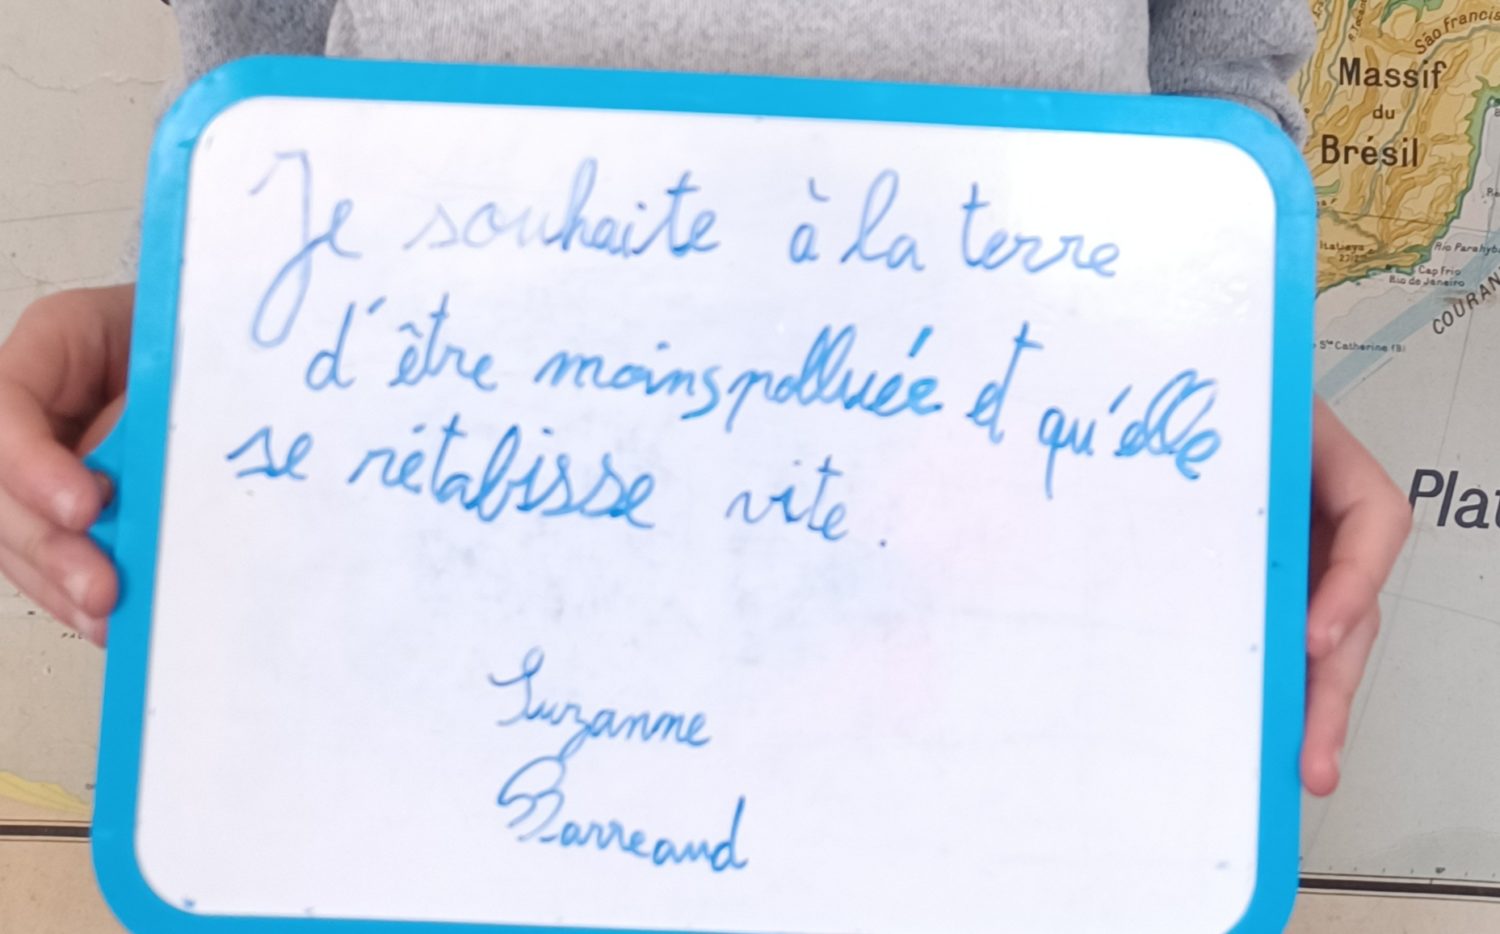 Je souhaite à la terre
d'être moins polluée et qu'elle
se rétabisse vite.
Suzanne
Barreaud
São Francis
Massif
du
Brésil
Itatiaya
Rio Parahyb
Cap Frio
Rio de Janeiro
COURAN
Ste Catherine (B)
Plat